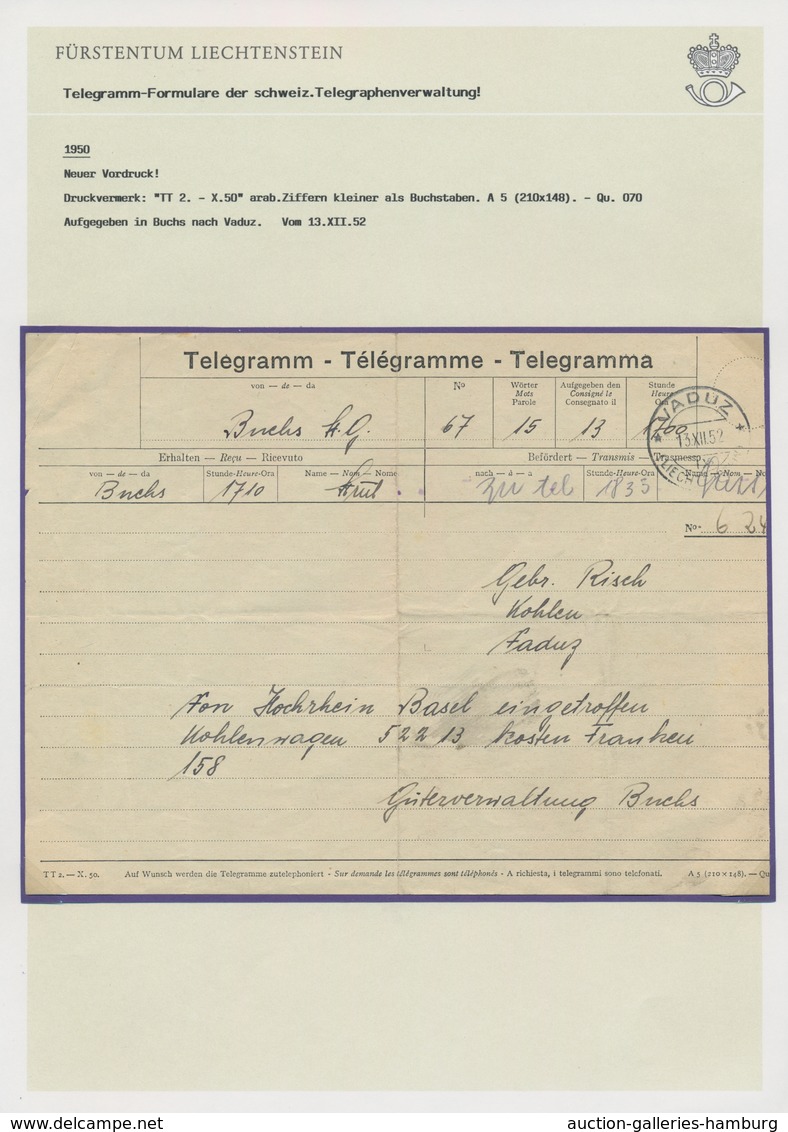 FÜRSTENTUM LIECHTENSTEIN
Telegramm-Formulare der schweiz.Telegraphenverwaltung!
1950
Neuer Vordruck!
Druckvermerk: "TT 2. - X.50" arab.Ziffern kleiner als Buchstaben. A 5 (210x148). - Qu. 070
Aufgegeben in Buchs nach Vaduz. Vom 13.XII.52
Telegramm - Télégramme - Telegramma
von — de — da
No
Wörter
Mots
Parole
Aufgegeben den
Consigné le
Consegnato il
Stunde
Heure
Ora
Buchs St.G. 67 15 13 1700
VADUZ
13.XII.52
Erhalten — Reçu — Ricevuto
Befördert — Transmis — Trasmesso
von — de — da
Stunde-Heure-Ora
Name — Nom — Nome
nach — à — a
Stunde-Heure-Ora
Name — Nom — No
Buchs 1710 zu tel 1833
No. 6 24
Gebr. Risch
Kohlen
Vaduz
Von Hochrhein Basel eingetroffen
Kohlenwagen 522 13 kosten Franken
158
Güterverwaltung Buchs
TT 2. — X. 50. Auf Wunsch werden die Telegramme zutelephoniert - Sur demande les télégrammes sont téléphonés - A richiesta, i telegrammi sono telefonati. A 5 (210 × 148). — Qu
auction-galleries-hamburg
delcampe.net